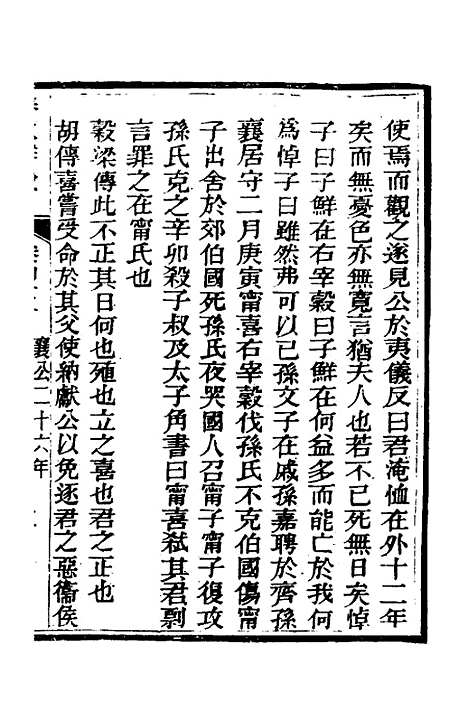 使焉而觀之遂見公於夷儀反曰君淹恤在外十二年
矣而無憂色亦無寬言猶夫人也若不已死無日矣悼
子曰子鮮在右宰穀曰子鮮在何益多而能亡於我何
爲悼子曰雖然弗可以已孫文子在戚孫嘉聘於齊孫
襄居守二月庚寅甯喜右宰穀伐孫氏不克伯國傷甯
子出舍於郊伯國死孫氏夜哭國人召甯子甯子復攻
孫氏克之辛卯殺子叔及太子角書曰甯喜弒其君剽
言罪之在甯氏也
穀梁傳此不正其日何也殖也立之喜也君之正也
胡傳喜嘗受命於其父使納獻公以免逐君之惡衞侯
襄公二十六年